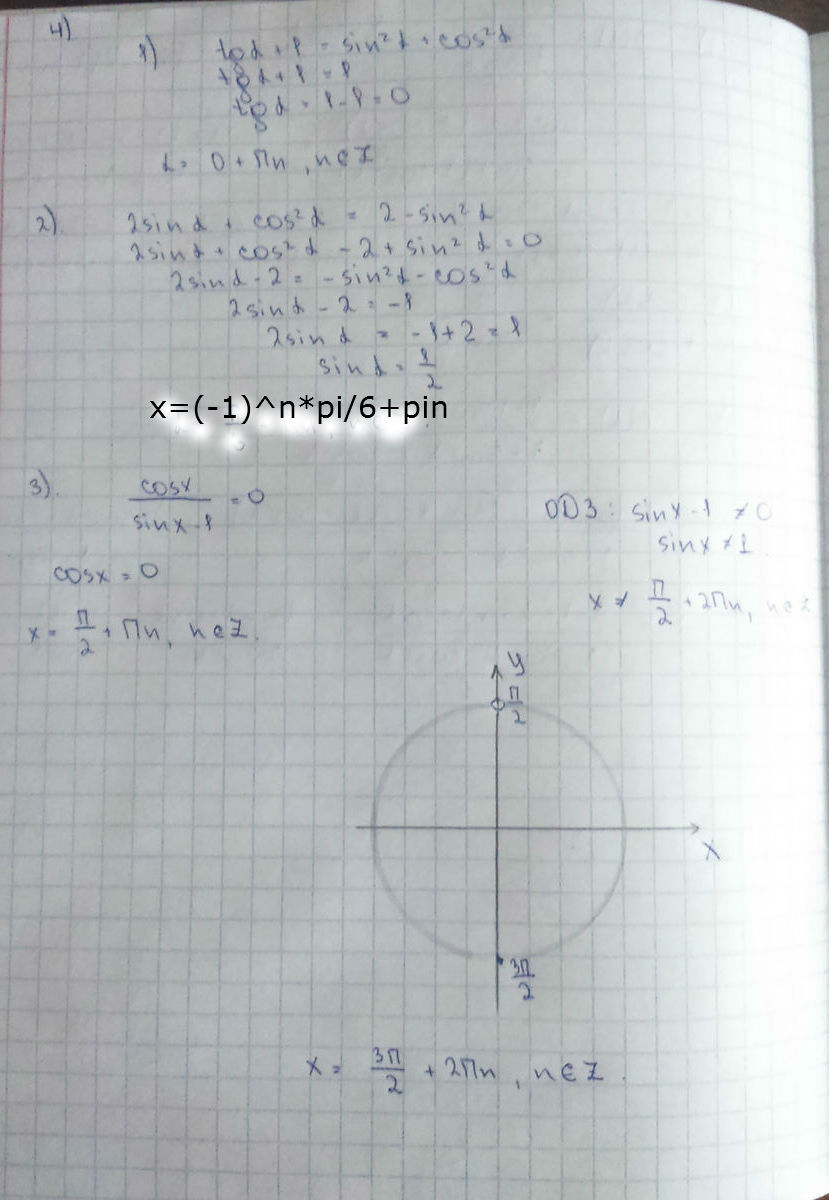 4)
1) tg α + 1 = sin²α + cos²α
tg α + 1 = 1
tg α = 1 - 1 = 0
α = 0 + Πn, n ∈ Z
2). 2sin α + cos²α = 2 - sin²α
2sin α + cos²α - 2 + sin²α = 0
2sin α - 2 = -sin²α - cos²α
2sin α - 2 = -1
2sin α = -1 + 2 = 1
sin α = 1/2
x=(-1)^n*pi/6+pin
3). cosx/(sinx-1) = 0
ОДЗ: sinx - 1 ≠ 0
sinx ≠ 1.
cosx = 0
x ≠ Π/2 + 2Πn, n ∈ Z
x = Π/2 + Πn, n ∈ Z.
y
Π/2
x
3Π/2
x = 3Π/2 + 2Πn, n ∈ Z.